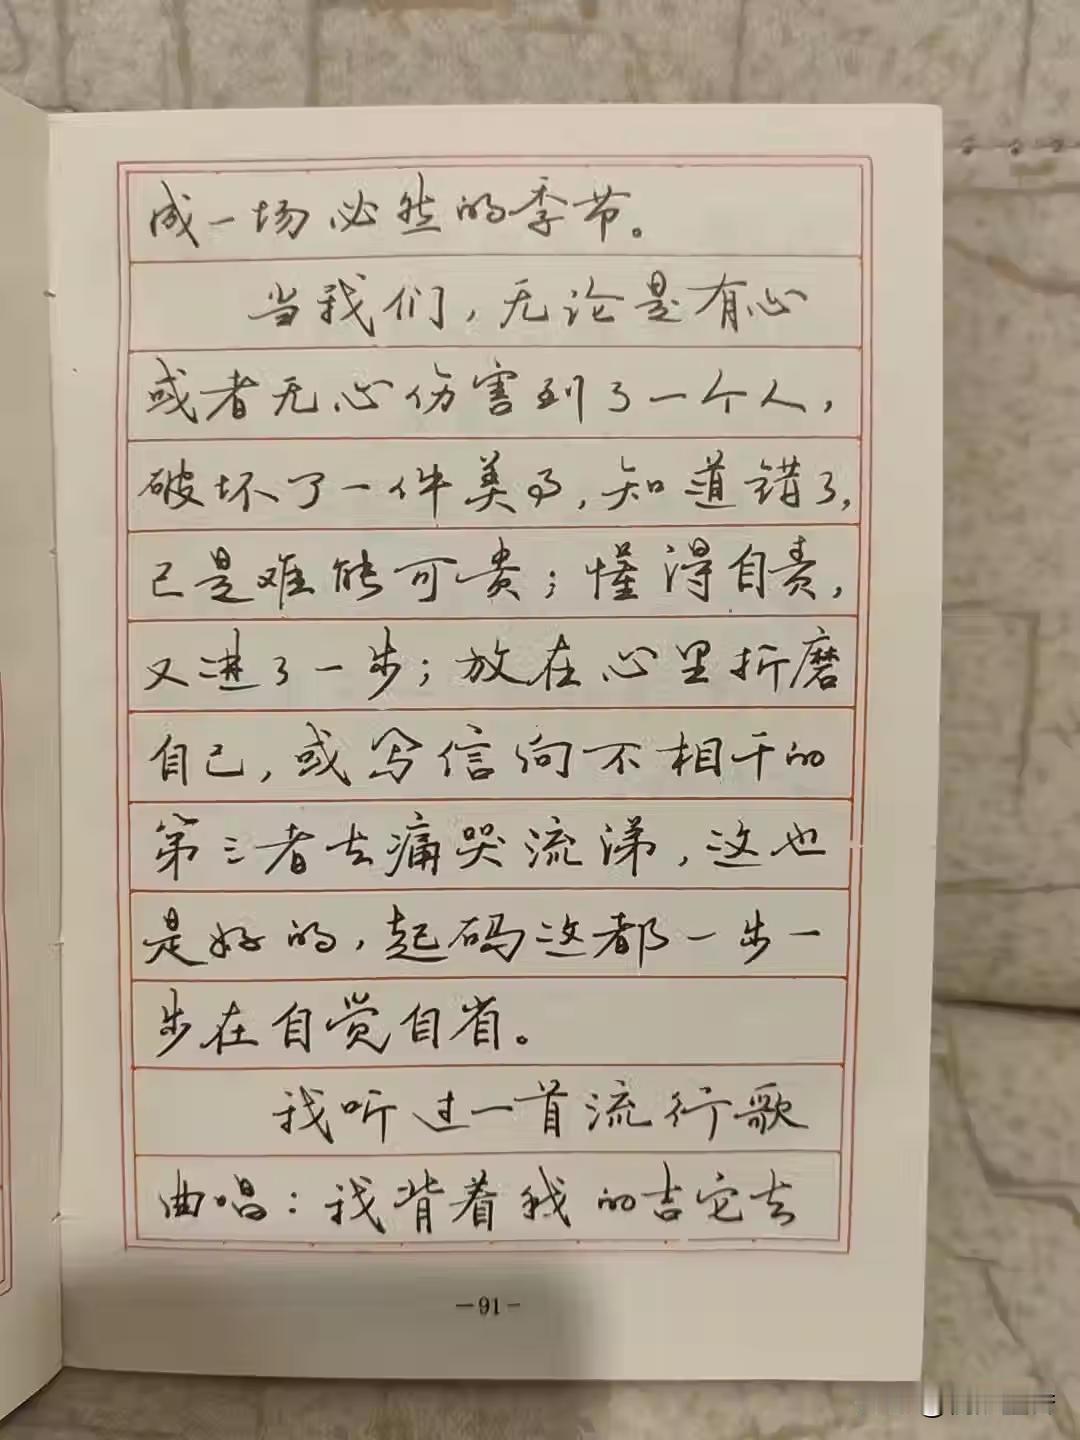 成一场必然的季节。
当我们，无论是有心
或者无心伤害到了一个人，
破坏了一件美事，知道错了，
已是难能可贵；懂得自责，
又进了一步；放在心里折磨
自己，或写信向不相干的
第三者去痛哭流涕，这也
是好的，起码这都一步一
步在自觉自省。
我听过一首流行歌
曲唱：我背着我的吉它去
-91-